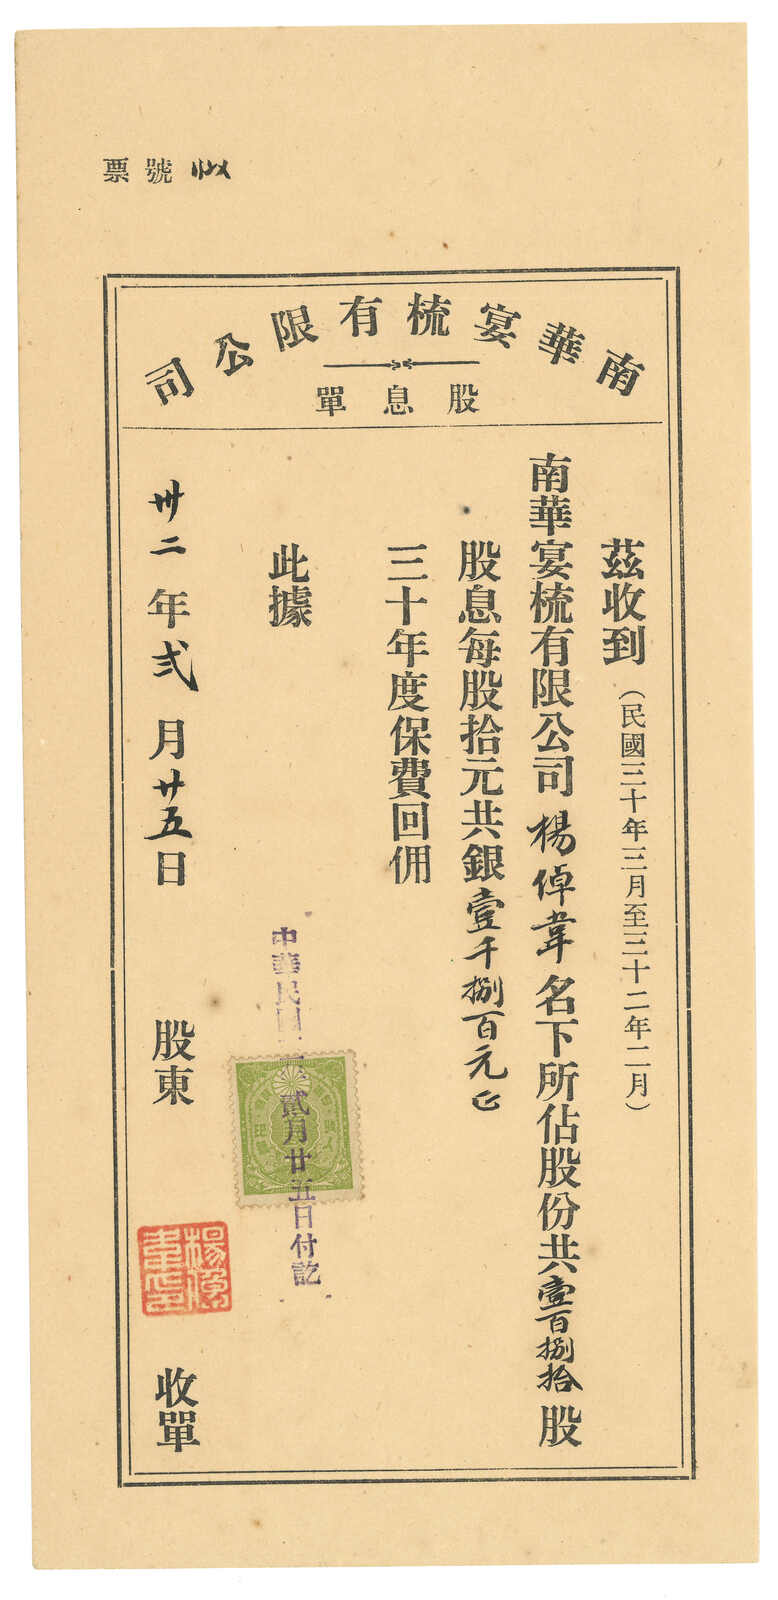 票號
南華宴梳有限公司
股息單
茲收到（民國三十年三月至三十二年二月）
南華宴梳有限公司楊倬韋名下所佔股份共壹百捌拾股
股息每股拾元共銀壹千捌百元正
三十年度保費回佣
此據
中華民國 貳月廿五日付訖
卅二年弍月廿五日 股東 收單